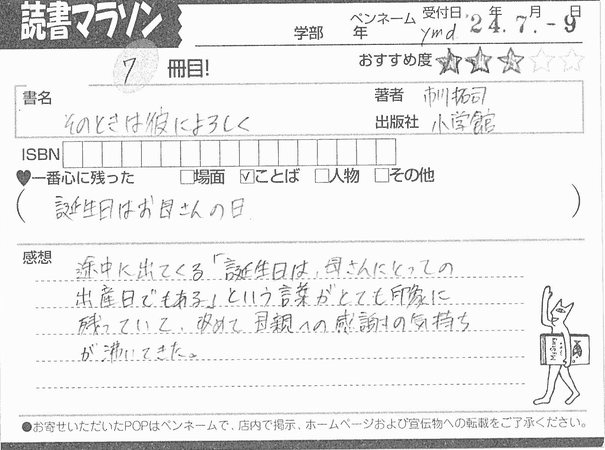 読書マラソン
学部 年 ペンネーム ymd 受付日 24.7.-9 年 月 日
7 冊目! おすすめ度 ★★★☆☆
書名 そのときは彼によろしく
著者 市川拓司
出版社 小学館
ISBN
♥一番心に残った □場面 ☑ことば □人物 □その他
(誕生日はお母さんの日)
感想
途中に出てくる「誕生日は、母さんにとっての
出産日でもある」という言葉がとても印象に
残っていて、改めて母親への感謝の気持ち
が沸いてきた。
●お寄せいただいたPOPはペンネームで、店内で掲示、ホームページおよび宣伝物への転載をご了承ください。